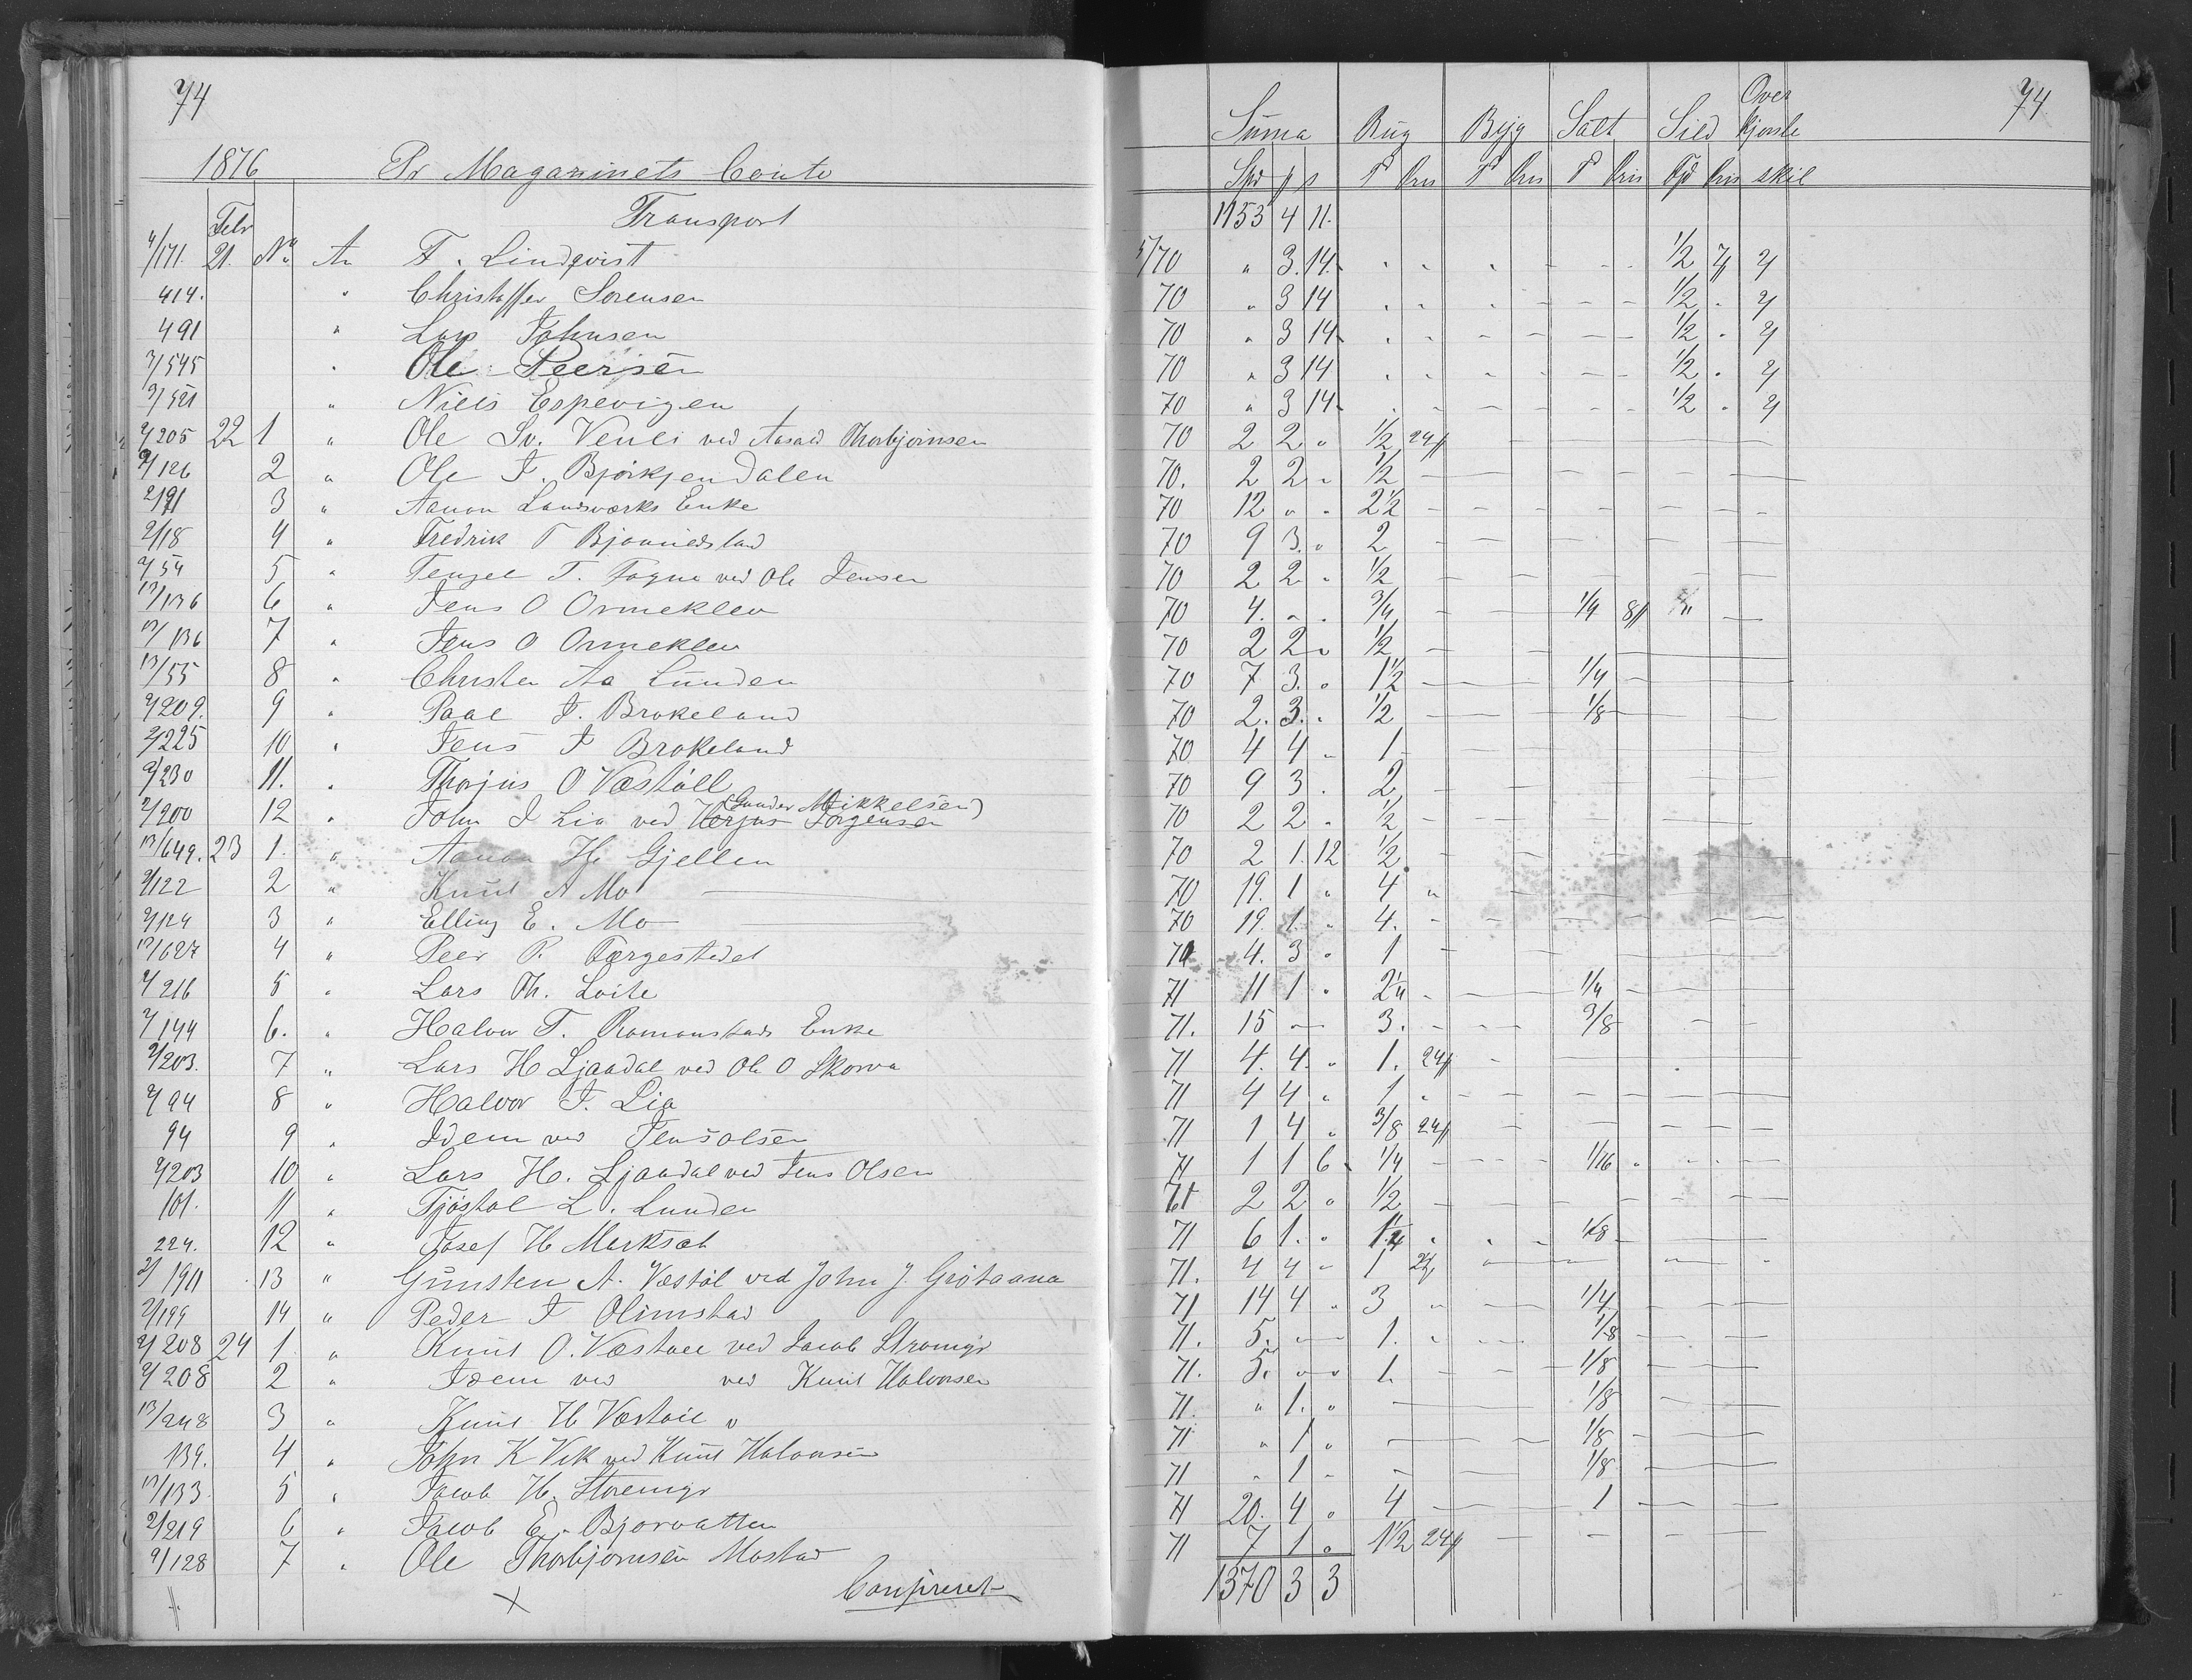 74
1876 Pr Magazinets Conto
Suma Rug Byg Salt Sild Over kjørsle 74
Spd p s Td Pris Td Pris Td Pris Fjd Pris skil
Transport 1153 4 11.
4/171. Febr 21. No. An F. Lindqvist 5/70 " 3. 14. 1/2 7 4
414. " Christoffer Sorensen 70 " 3 14 1/2 " 4
491 " Lars Johnsen 70 " 3 14 1/2 " 4
3/545 " Ole Peersen 70 " 3 14 1/2 " 4
3/521 " Niels Espevigen 70 " 3 14 1/2 " 4
4/205 22 1 " Ole Sv. Venli ved Aasald Thorbjørnsen 70 2 2 " 1/2 24
2/126 2 " Ole J. Bjørkjendalen 70. 2 2 " 1/2
3 " Aanon Landsværks Enke 70 12 " " 2 1/2
2/18 4 " Fredrik T Bjonnidsland 70 9 3. " 2
2/54 5 " Tengel T. Fogne ved Ole Jensen 70 2 2 " 1/2
12/136 6 " Jens O Ormeklev 70 4. " " 3/4 1/4 8
12/136 7 " Jens O Ormeklev 70 2 2 " 1/2
13/55 8 " Christen Aa Lunden 70 7 3. " 1 1/2 1/4
4/209. 9 " Paal J. Brokeland 70 2. 3. " 1/2 1/8
2/225 10 " Jens J Brokeland 70 4 4 " 1
2/230 11. " Thorjus O Væstøll 70 9 3 " 2
2/200 12 " John J Lia ved Jørgensen (Gunder Mikkelsen) 70 2 2 " 1/2
13/649. 23 1. " Aanon H. Gjellen 70 2 1. 12 1/2
2/122 2 " Knut A Mo 70 19. 1 " 4 "
2/124 3 " Elling E. Mo 70 19. 1. " 4. "
12/627 4 " Peer P. Færgestedet 71 4. 3 " 1
4/216 5 " Lars Th. Loite 71 11 1 " 2 1/4 1/4
2/144 6. " Halvor T. Romonstads Enke 71. 15 3. 3/8
2/203. 7 " Lars H Ljaadal ved Ole O Skorva 71 4. 4. " 1. 24
2/94 8 " Halvor J. Lia 71 4 4 " 1
94 9 " Idem ved Jens Olsen 71 1 4 " 3/8 24
2/203 10 " Lars H. Ljaadal ved Jens Olsen 71 1 1 6 1/4 1/16
101. 11 " Tjøstal L. Lunden 71 2 2 " 1/2
224. 12 " Josef H Morksæt 71 6 1. " 1 1/4 1/8
2/191 13 " Gunsten A. Væstøl ved John J. Grøtaana 71. 4 4 " 1 24
2/199 14 " Peder J Olimstad 71 14 4 " 3 " 1/4
2/208 24 1. " Knut O. Væstøll ved Jacob Stromgr 71. 5. 1. " 1/8
2/208 2 " Idem ved ved Knut Halvorsen 71. 5. 1. 1/8
13/248 3 " Knut H Væstøll " 71. " 1. " 1/8
139. 4 " John K Vik ved Knut Halvorsen 71 " 1 " 1/8
12/133 5 " Jacob H. Storemyr 71 " 1 " 1/8
2/219 6 " Jacob E. Bjorvatten 71 20. 4 " 4 1
2/128 7 " Ole Thorbjornsen Mostad 71 7 1 " 1 1/2 24
Confereret 1370 3 3